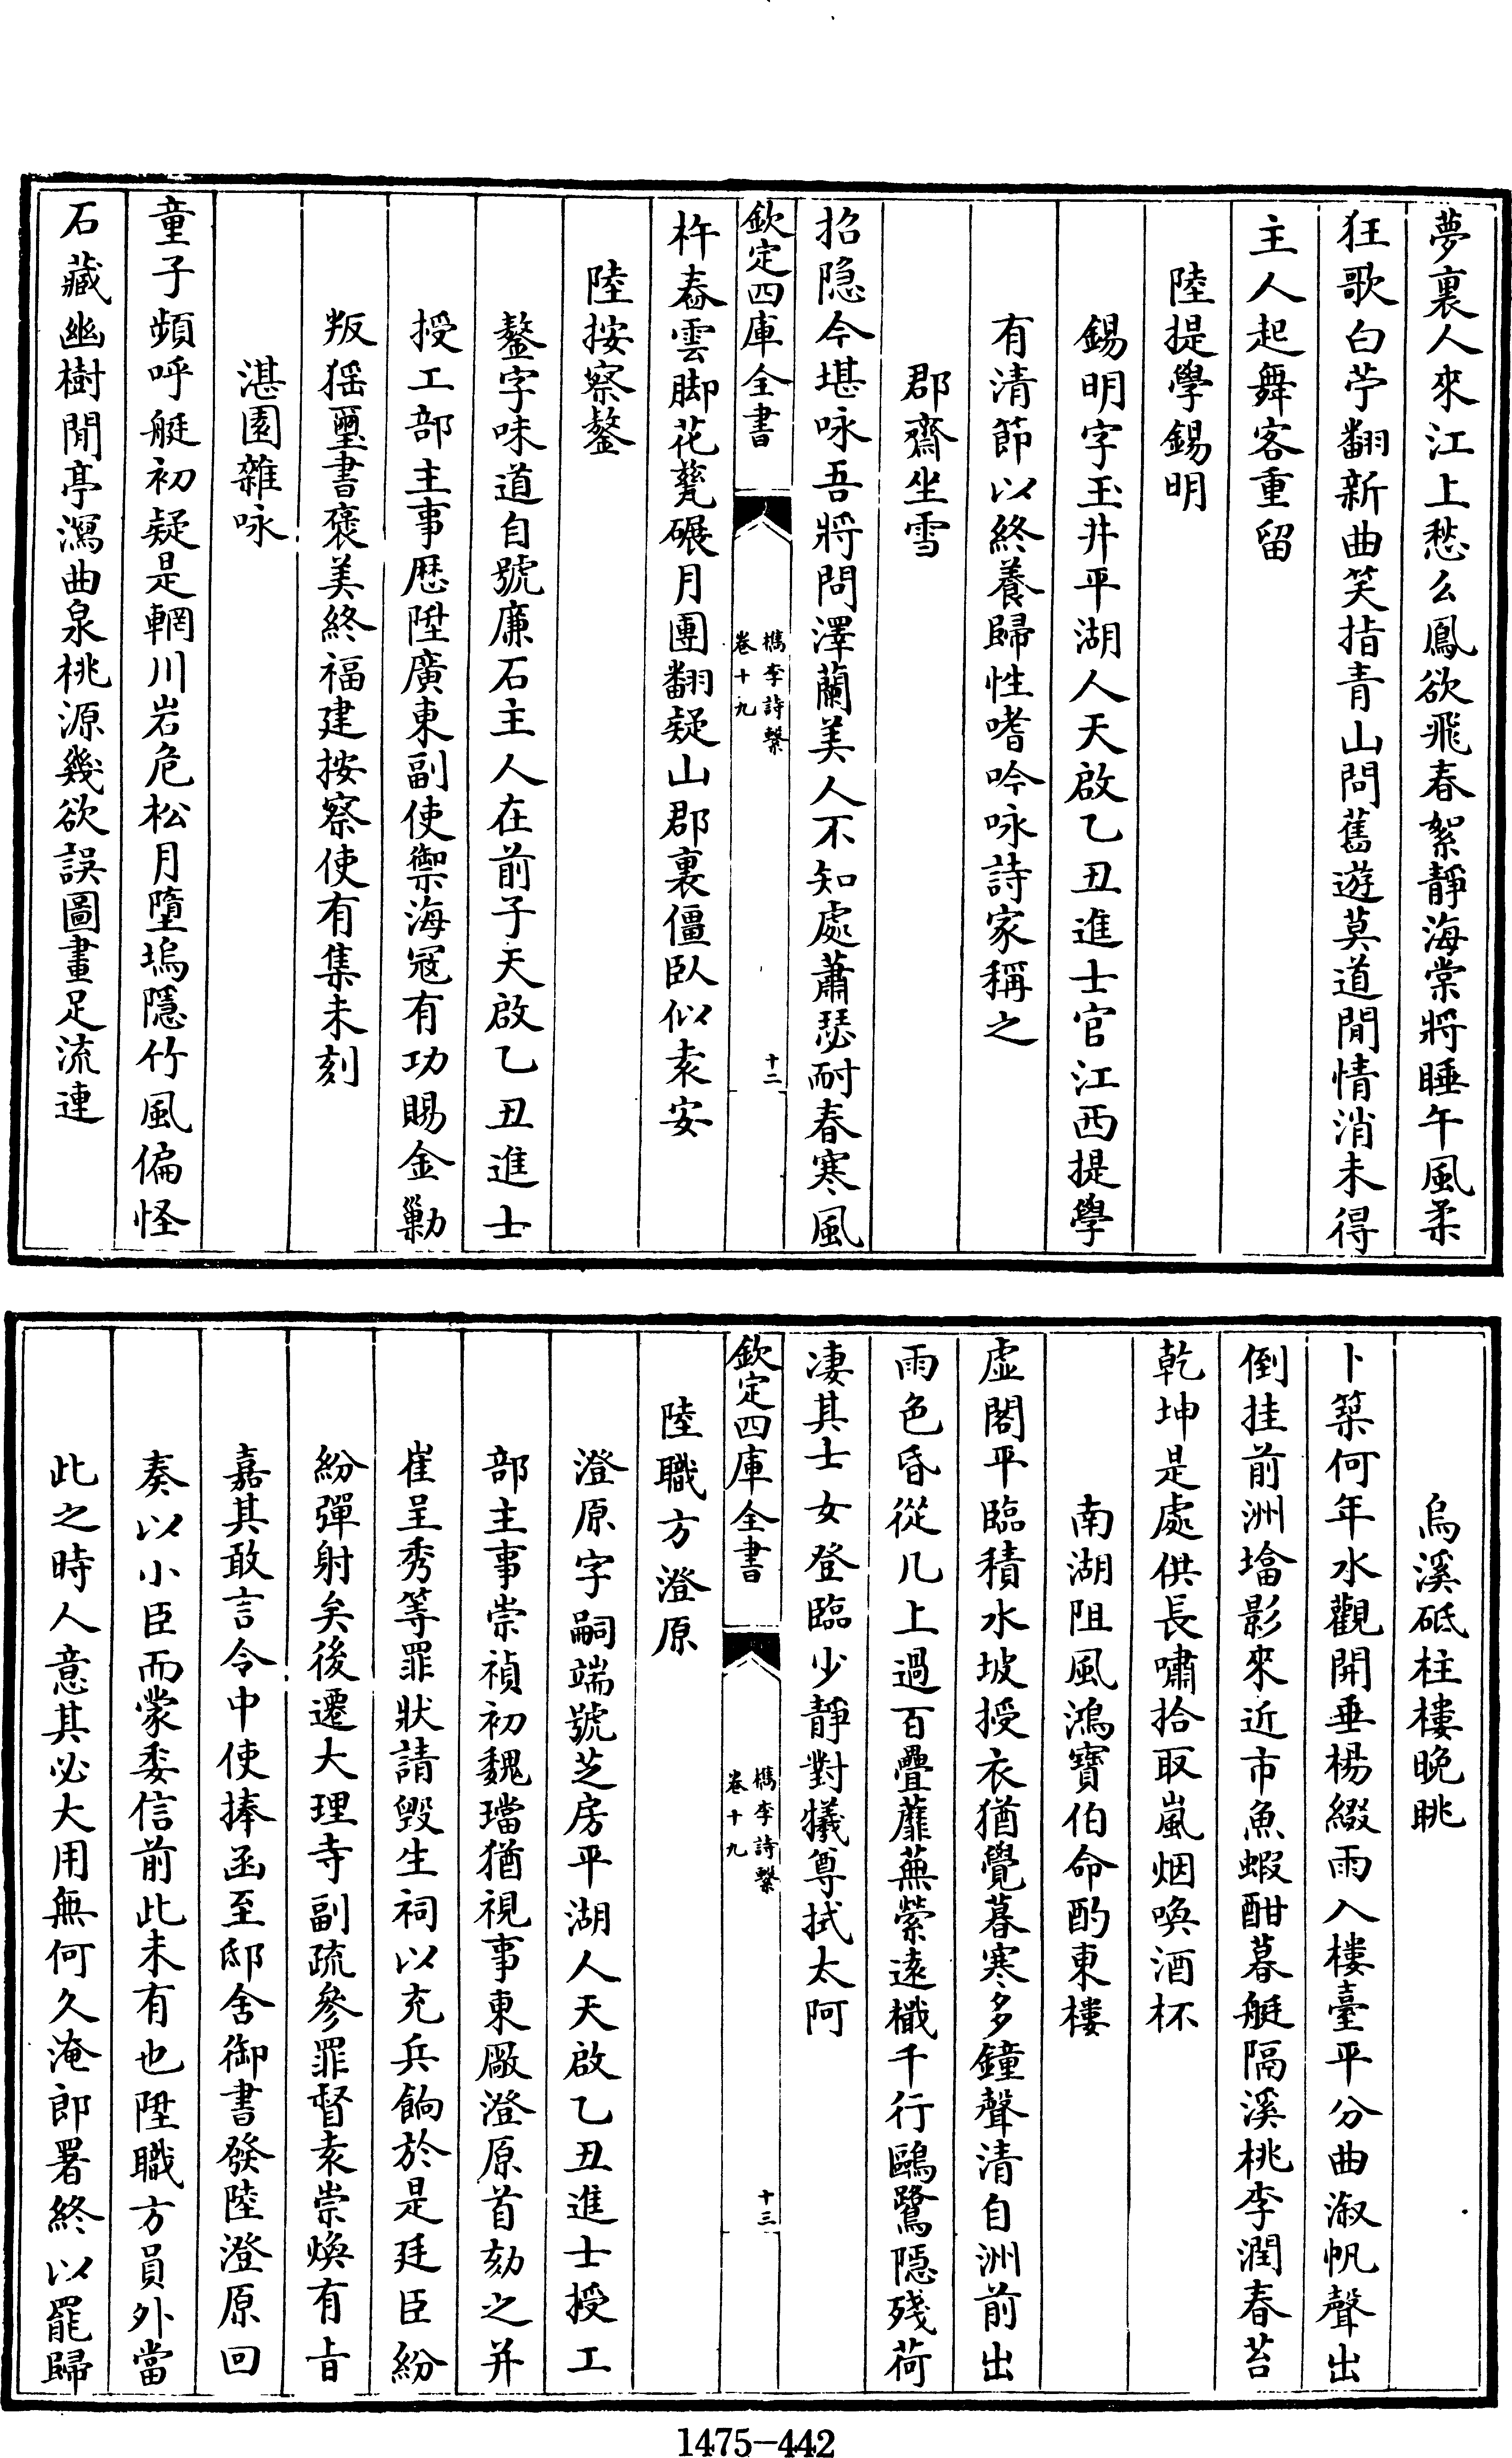 夢裏人來江上愁么鳳欲飛春絮靜海棠將睡午風柔
狂歌白苧翻新曲笑指青山問舊遊莫道閒情消未得
主人起舞客重留
陸提學錫明
錫明字玉井平湖人天啟乙丑進士官江西提學
有清節以終養歸性嗜吟咏詩家稱之
郡齋坐雪
招隐今堪咏吾將問澤蘭美人不知處蕭瑟耐春寒風
欽定四庫全書
檇李詩繫
卷十九
十二
杵舂雲脚花甃碾月團翻疑山郡裏僵臥似袁安
陸按察鏊
鏊字味道自號廉石主人在前子天啟乙丑進士
授工部主事歷陞廣東副使禦海寇有功賜金勦
叛猺璽書褒美終福建按察使有集未刻
湛園雜咏
童子頻呼艇初疑是輞川岩危松月墮塢隱竹風偏怪
石藏幽樹閒亭瀉曲泉桃源幾欲誤圖畫足流連
烏溪砥柱樓晚眺
卜築何年水觀開垂楊綴雨入樓臺平分曲溆帆聲出
倒挂前洲墖影來近市魚蝦酣暮艇隔溪桃李潤春苔
乾坤是處供長嘯拾取嵐烟喚酒杯
南湖阻風鴻寶伯命酌東樓
虛閣平臨積水坡授衣猶覺暮寒多鐘聲清自洲前出
雨色昏從几上過百疊蘼蕪縈遠檝千行鷗鷺隱殘荷
凄其士女登臨少靜對犧尊拭太阿
欽定四庫全書
檇李詩繫
卷十九
十三
陸職方澄原
澄原字嗣端號芝房平湖人天啟乙丑進士授工
部主事崇禎初魏璫猶視事東廠澄原首劾之并
崔呈秀等罪狀請毀生祠以充兵餉於是廷臣紛
紛彈射矣後遷大理寺副疏參罪督袁崇煥有旨
嘉其敢言令中使捧函至邸舍御書發陸澄原回
奏以小臣而蒙委信前此未有也陞職方員外當
此之時人意其必大用無何久淹郎署終以罷歸
1475-442